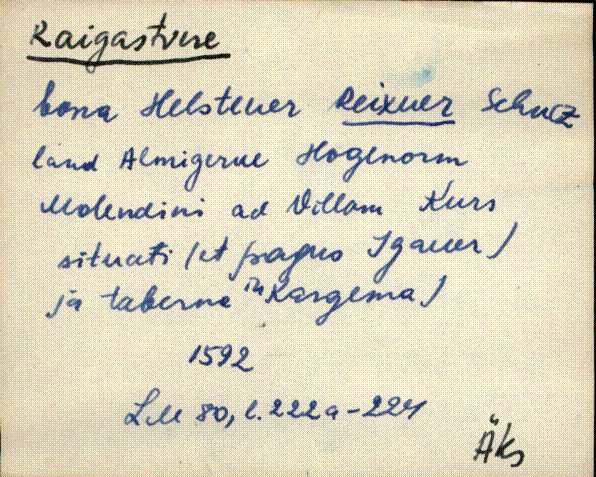 Raigastvere
bona Helstener Reixuer Schucz
land Almigerue Hogenorm
Molendini ad Villam Kurs
situati (et pagus Igauer)
ja taberna in Kargema)
1592
LM 80, l. 222a-224
Äks